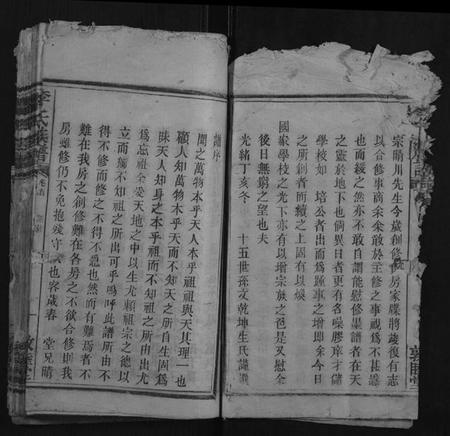 宗晴川先生令㢤創修
房家牒將歲復有志
以合修事商朵朵敢於主修之事視爲不甚誤
也而緩之然亦不敢自謂能慰修墨譜者在天
之靈於地下也倘異日者更有名噪膠庠才儲
學校如 培公者出而爲踵事之增即余今日
之所創者而續之上固有以燦
國家學校之光下亦有以增宗族之色是又慰全
後日無窮之望也夫
光緒丁亥冬 十五世孫文乾坤生氏謹識
譜序
聞之萬物本乎天人本乎祖與天其理一也
顧人知萬物本乎天而不知天之所自生固爲
昧天人知身之本乎祖而不知祖之所由出尤
爲忘祖全受天地之中以生尤賴祖宗之德以
立而獨不知祖之所出可乎嗚呼此譜所由不
得不修而修之不得不急也然而有難焉者不
難在我房之創修難在各房之不欲合修則我
房雖修仍不免抱殘守 也容歲春 堂兄晴
李氏族譜
敦睦堂